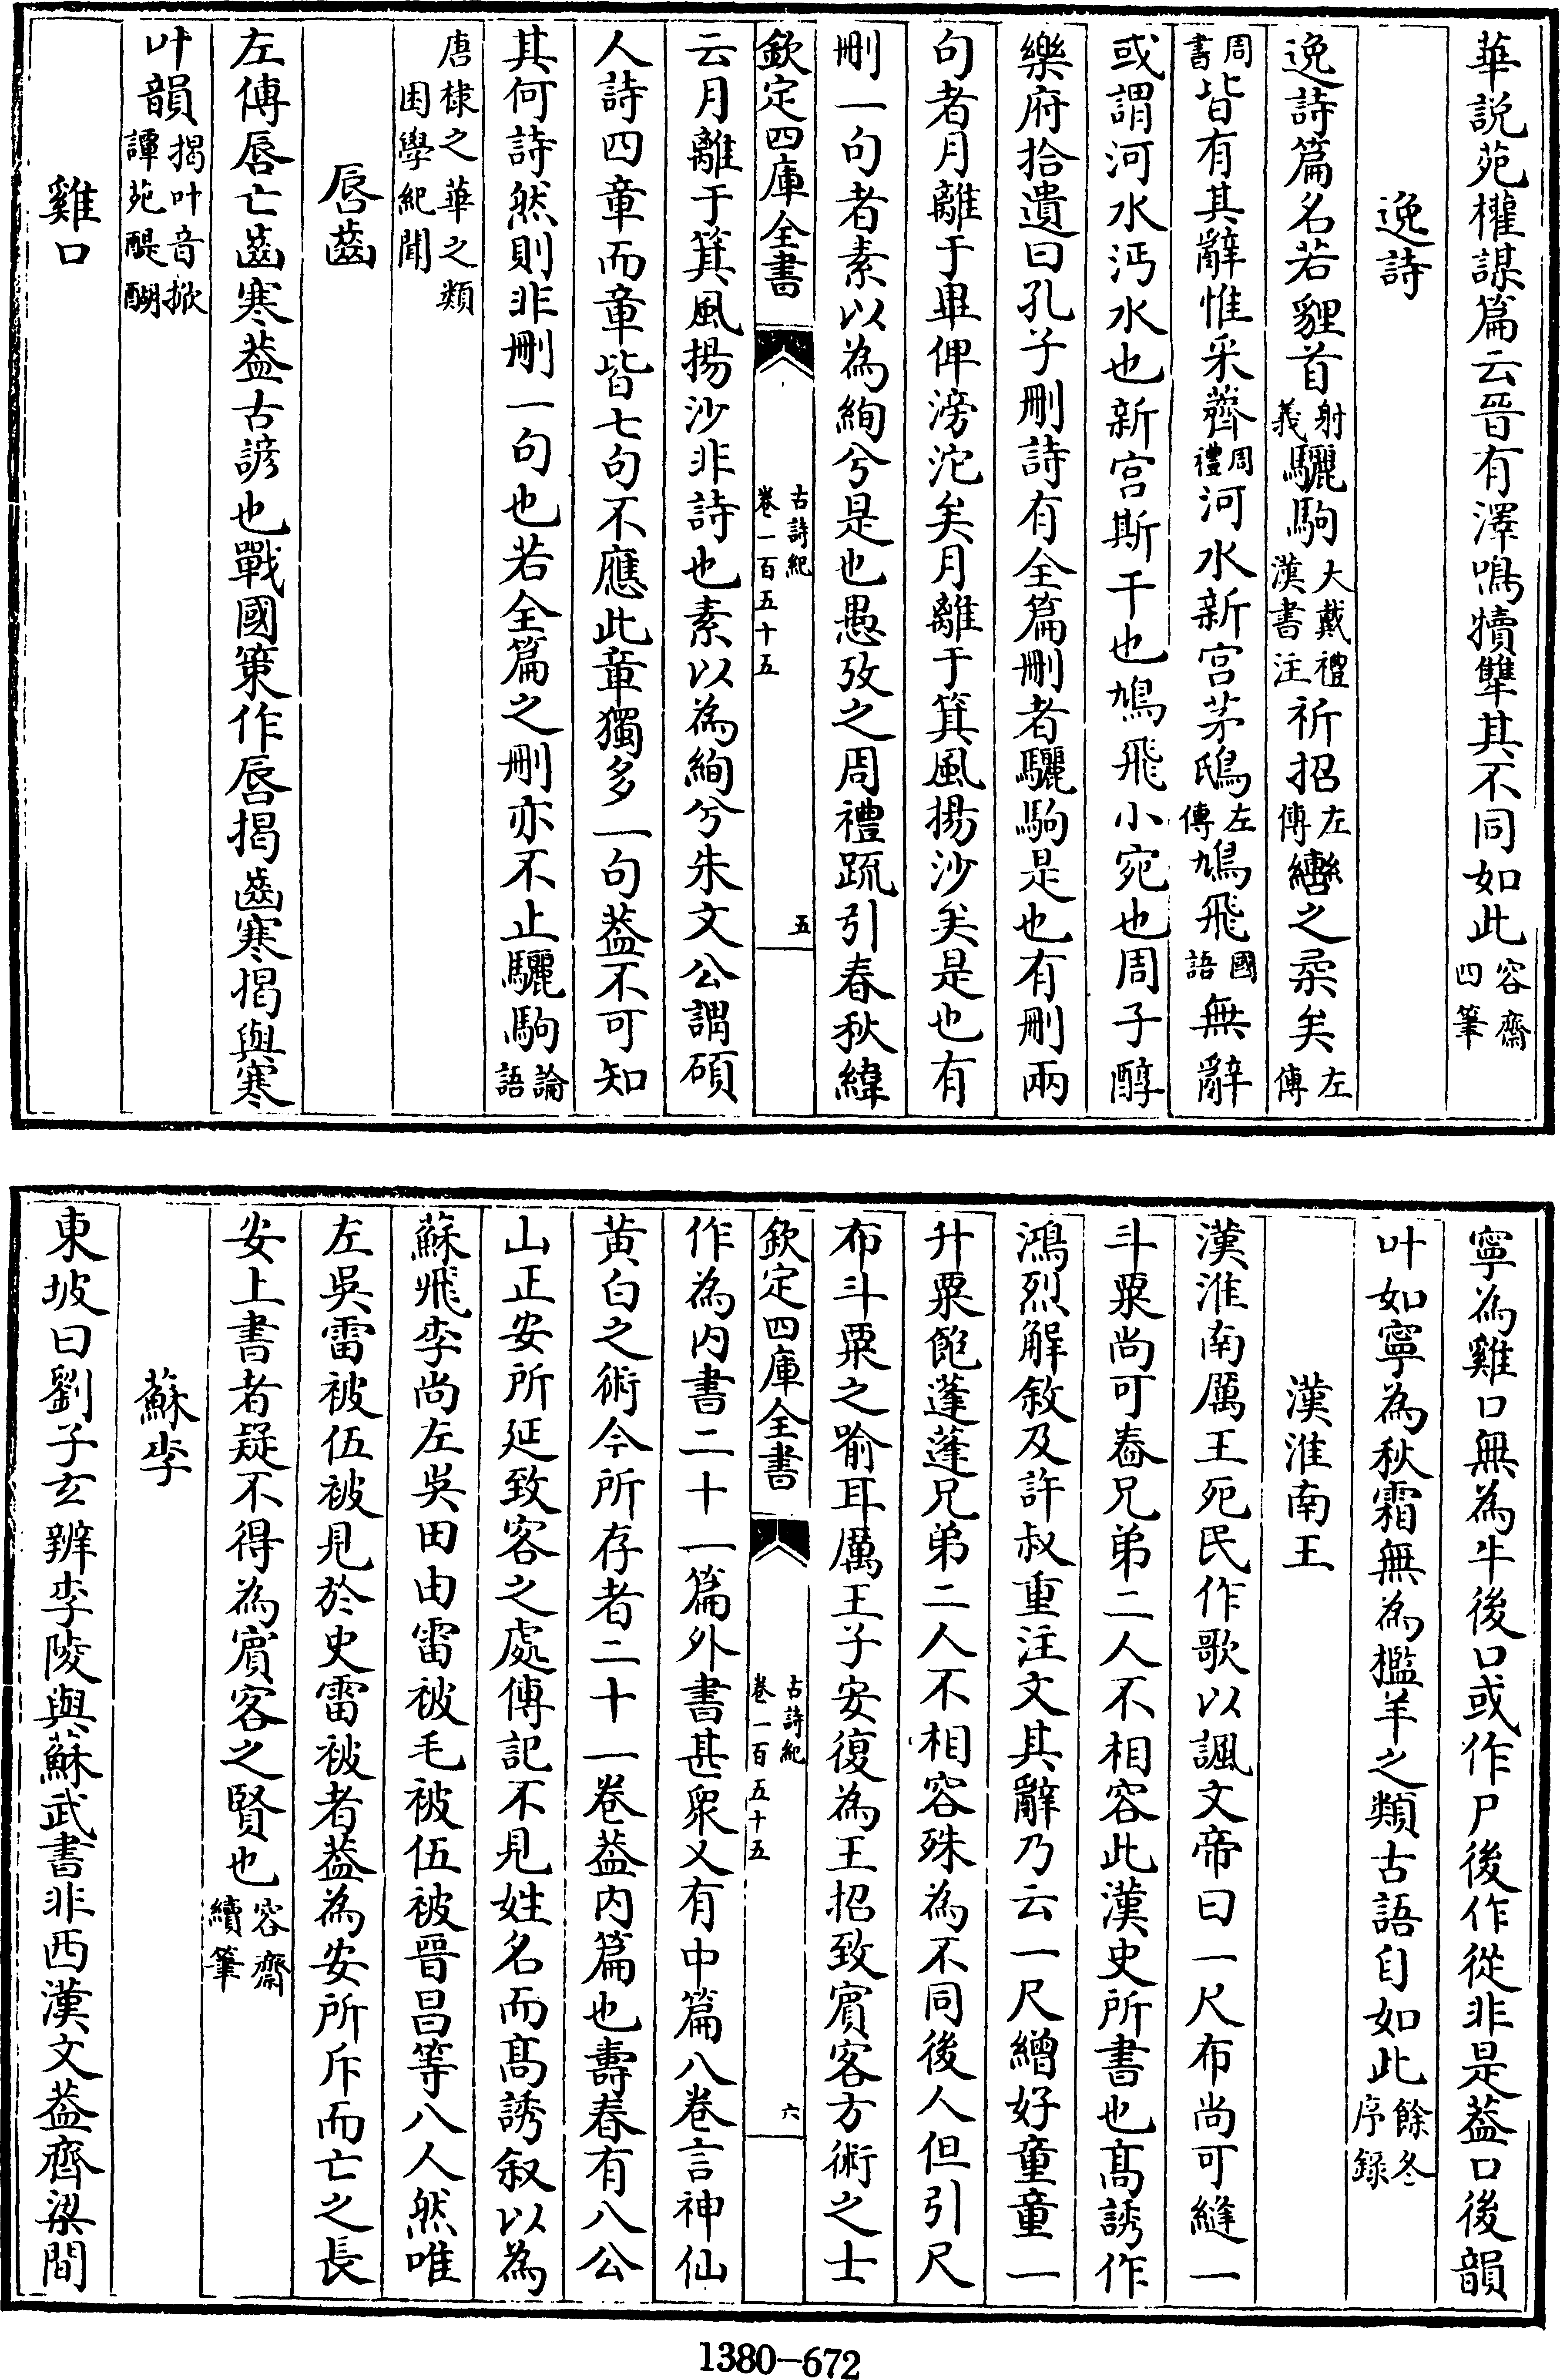 華説苑權謀篇云晉有澤鳴犢犨其不同如此容齋四筆
逸詩
逸詩篇名若貍首射義驪駒大戴禮漢書注祈招左傳轡之柔矣左傳
周書皆有其辭惟采薺周禮河水新宫茅鴟左傳鳩飛國語無辭
或謂河水沔水也新宫斯干也鳩飛小宛也周子醇
樂府拾遺曰孔子刪詩有全篇刪者驪駒是也有刪兩
句者月離于畢俾滂沱矣月離于箕風揚沙矣是也有
刪一句者素以為絢兮是也愚攷之周禮疏引春秋緯
欽定四庫全書
古詩紀
卷一百五十五
五
云月離于箕風揚沙非詩也素以為絢兮朱文公謂碩
人詩四章而章皆七句不應此章獨多一句葢不可知
其何詩然則非刪一句也若全篇之刪亦不止驪駒論語
唐棣之華之類
困學紀聞
唇齒
左傳唇亡齒寒葢古諺也戰國策作唇揭齒寒揭與寒
叶韻揭叶音掀譚苑醍醐
雞口
寧為雞口無為牛後口或作尸後作從非是葢口後韻
叶如寧為秋霜無為檻羊之類古語自如此餘冬序録
漢淮南王
漢淮南厲王死民作歌以諷文帝曰一尺布尚可縫一
斗粟尚可舂兄弟二人不相容此漢史所書也髙誘作
鴻烈解敘及許叔重注文其辭乃云一尺繒好童童一
升粟飽蓬蓬兄弟二人不相容殊為不同後人但引尺
布斗粟之喻耳厲王子安復為王招致賓客方術之士
欽定四庫全書
古詩紀
卷一百五十五
六
作為内書二十一篇外書甚衆又有中篇八卷言神仙
黄白之術今所存者二十一卷葢内篇也壽春有八公
山正安所延致客之處傳記不見姓名而髙誘叙以為
蘇飛李尚左吳田由雷被毛被伍被晉昌等八人然唯
左吳雷被伍被見於史雷被者葢為安所斥而亡之長
安上書者疑不得為賓客之賢也容齋續筆
蘇李
東坡曰劉子玄辨李陵與蘇武書非西漢文葢齊梁間
1380-672